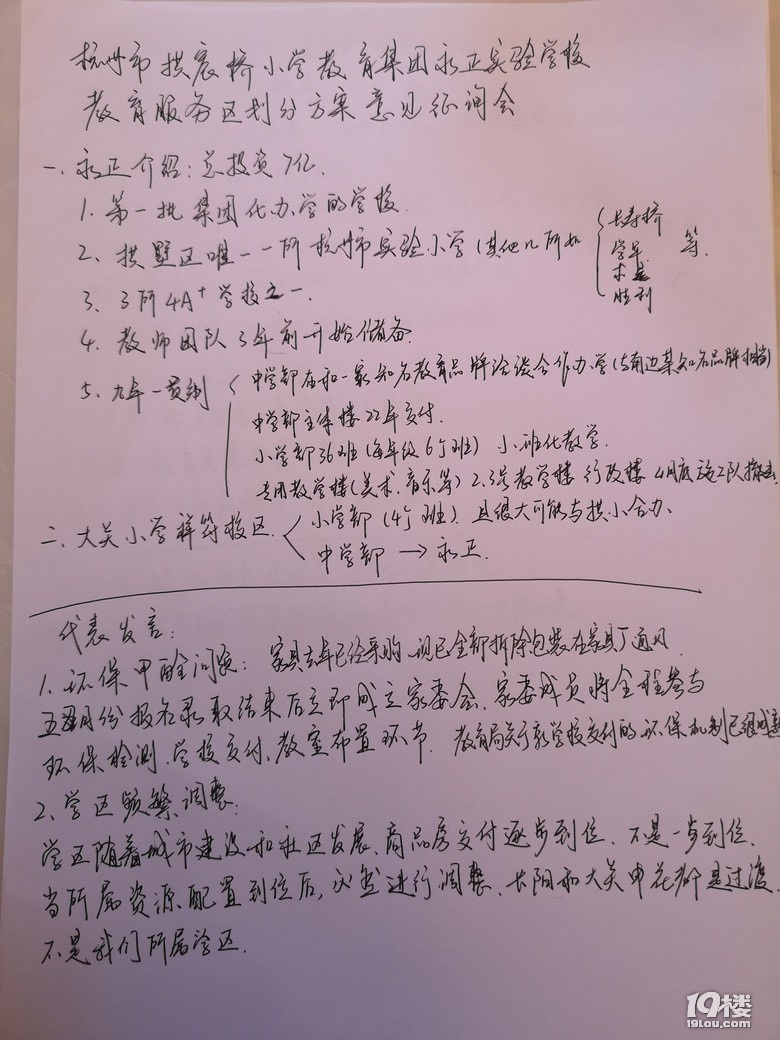 杭州市拱宸桥小学教育集团永正实验学校
教育服务区划分方案意见征询会
一、永正介绍：总投资7亿.
1. 第一批集团化办学的学校.
2、拱墅区唯一一所杭州市实验小学（其他几所如 长寿桥 学军 求是 胜利 等.
3、3所4A+学校之一.
4、教师团队3年前开始储备.
5、九年一贯制 中学部在和一家知名教育品牌洽谈合作办学（与南边某知名品牌相当）
中学部主体楼22年交付.
小学部36班（每年级6个班） 小班化教学.
专用教学楼（美术、音乐等）2.3号教学楼 行政楼 4月底施工队撤走
二、大关小学祥符校区. 小学部（4个班）. 且很大可能与拱小合办、
中学部 → 永正.
代表发言：
1. 环保甲醛问题： 家具去年已经采购 现已全部拆除包装在家具厂通风.
五月份报名录取结束后立即成立家委会、家委成员将全程参与
环保检测、学校交付、教室布置环节. 教育局关于新学校交付的环保机制已很成熟
2、学区频繁调整：
学区随着城市建设和社区发展、商品房交付逐步到位. 不是一步到位.
当所属资源配置到位后，必然进行调整、长阳和大关申花都是过渡.
不是我们所属学区.
19楼
19lou.com